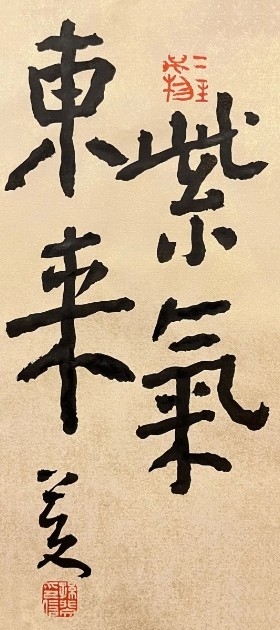 紫氣
東来